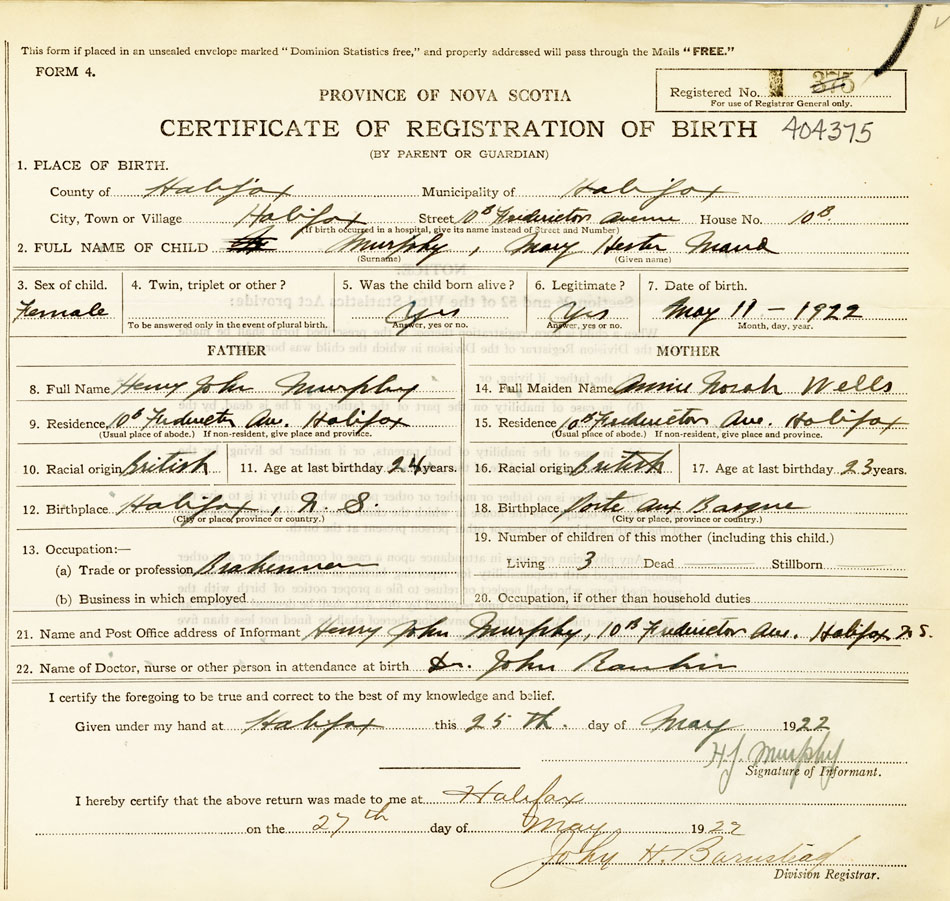 This form if placed in an unsealed envelope marked "Dominion Statistics free," and properly addressed will pass through the Mails "FREE."
FORM 4.
Registered No. 375
For use of Registrar General only.
PROVINCE OF NOVA SCOTIA
CERTIFICATE OF REGISTRATION OF BIRTH 404375
(BY PARENT OR GUARDIAN)
1. PLACE OF BIRTH.
County of Halifax Municipality of Halifax
City, Town or Village Halifax Street 10B Fredericton Avenue House No. 10B.
(If birth occurred in a hospital, give its name instead of Street and Number)
2. FULL NAME OF CHILD Murphy, Mary Hester Maud
(Surname) (Given name)
3. Sex of child. 4. Twin, triplet or other? 5. Was the child born alive? 6. Legitimate? 7. Date of birth.
Female Yes Yes May 11 - 1922
To be answered only in the event of plural birth. Answer, yes or no. Answer, yes or no. Month, day, year.
FATHER MOTHER
8. Full Name Henry John Murphy 14. Full Maiden Name Annie Norah Wells
9. Residence 10B Fredericton Av. Halifax 15. Residence 10B Fredericton Ave. Halifax
(Usual place of abode.) If non-resident, give place and province. (Usual place of abode.) If non-resident, give place and province.
10. Racial origin British 11. Age at last birthday 24 years. 16. Racial origin British 17. Age at last birthday 23 years.
12. Birthplace Halifax, N. S. 18. Birthplace Porte aux Basque
(City or place, province or country.) (City or place, province or country.)
13. Occupation:— 19. Number of children of this mother (including this child.)
(a) Trade or profession Brakeman Living 3 Dead Stillborn
(b) Business in which employed 20. Occupation, if other than household duties
21. Name and Post Office address of Informant Henry John Murphy, 10B Fredericton Ave. Halifax N.S.
22. Name of Doctor, nurse or other person in attendance at birth Dr. John Rankin
I certify the foregoing to be true and correct to the best of my knowledge and belief.
Given under my hand at Halifax this 25th. day of May 1922
H.J. Murphy
Signature of Informant.
I hereby certify that the above return was made to me at Halifax
on the 27th day of May 1922
John H. Barnstead
Division Registrar.